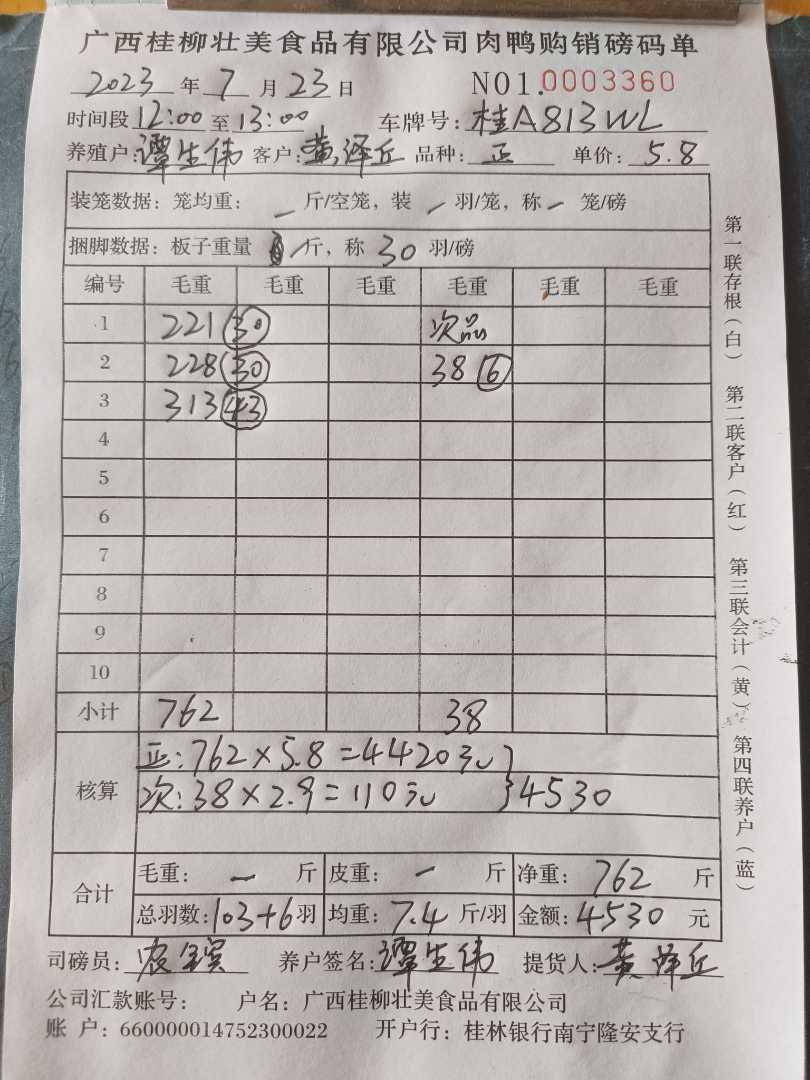 广西桂柳壮美食品有限公司肉鸭购销磅码单
2023 年 7 月 23 日 NO1.0003360
时间段 12:00 至 13:00 车牌号: 桂A813WL
养殖户: 谭生伟 客户: 黄泽丘 品种: 正 单价: 5.8
装笼数据: 笼均重: — 斤/空笼, 装 — 羽/笼, 称 — 笼/磅
捆脚数据: 板子重量 — 斤, 称 30 羽/磅
编号 毛重 毛重 毛重 毛重 毛重 毛重
1 221 30 次品
2 228 30 38 6
3 313 43
4
5
6
7
8
9
10
小计 762 38
核算
正: 762×5.8=4420元
次: 38×2.9=110元 } 4530
合计
毛重: — 斤 皮重: — 斤 净重: 762 斤
总羽数: 103+6 羽 均重: 7.4 斤/羽 金额: 4530 元
司磅员: 养户签名: 谭生伟 提货人: 黄泽丘
公司汇款账号: 户名: 广西桂柳壮美食品有限公司
账 户: 660000014752300022 开户行: 桂林银行南宁隆安支行
第一联存根(白) 第二联客户(红) 第三联会计(黄) 第四联养户(蓝)